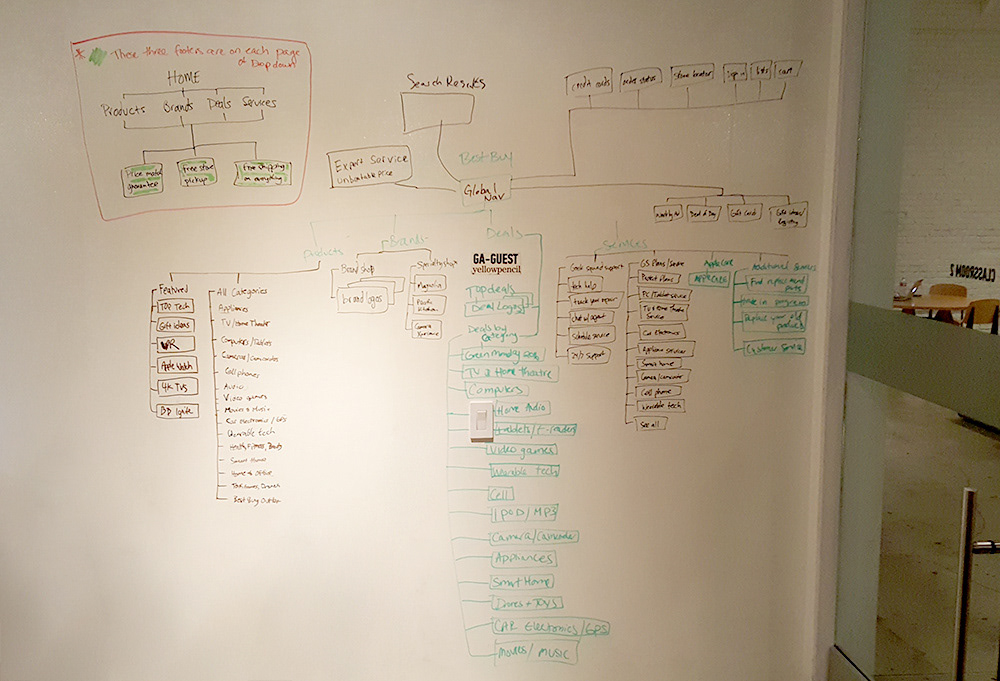 These three footers are on each page
of Dropdown
HOME
Products Brands Deals Services
Price match
guarantee
Free store
pickup
Free shipping
on everything
Search Results
credit cards
order status
Store locator
Sign in
lists
cart
Expert Service
unbeatable price
Best Buy
Global
Nav
Weekly Ad
Deal of Day
Gift Cards
Registry
Products
Brands
Deals
Services
GA-GUEST
yellowpencil
Featured
TOP Tech
Gift ideas
VR
Apple Watch
4K TVs
BB Ignite
All Categories
Appliances
TV/Home Theater
Computers/Tablets
Cameras/Camcorders
Cell phones
Audio
Video games
Movies & Music
Car electronics/GPS
Wearable tech
Health, Fitness, Beauty
Smart Home
Home & Office
Toys, Games, Drones
Best Buy Outlet
Brand Shop
brand logos
Specialty shops
Magnolia
Pacific
Kitchen
Camera
Experience
Top deals
Deal Logos
Deals by
Category
Green monday
TV & Home Theatre
Computers
Home Audio
Tablets/E-readers
Video games
Wearable tech
Cell
IPOD/MP3
Camera/Camcorder
Appliances
Smart Home
Drones + TOYS
CAR Electronics/GPS
Movies/MUSIC
Geek Squad support
tech help
track your repair
Chat w/ agent
Schedule service
24/7 Support
GS Plans/Service
Protect Plans
PC/Tablet service
TV & Home Theater
Service
Car electronics
Appliance services
Smart home
Camera/camcorder
Cell phone
Wearable tech
See all
Apple Care
APPLE CARE
Additional Services
Find replacement
parts
Trade in program
Recycle your old
products
Customer Service
CLASSROOM 2